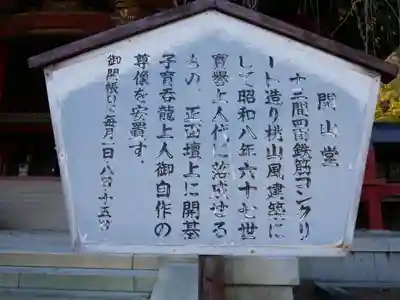 開山堂
十二間四面鉄筋コンクリ
ート造り桃山風建築に
して昭和八年六十七世
上人代に落成せる
もの、正面壇上に開基
子育呑龍上人御自作の
尊像を安置す。
御開帳ひ毎月一日八日十五日